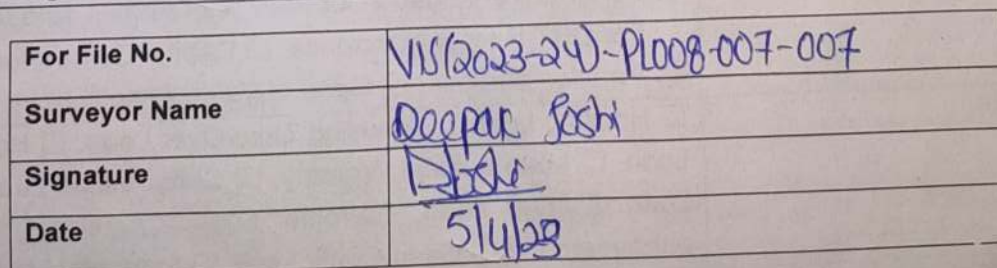 For File No. VIS(2023-24)-PL008-007-007
Surveyor Name Deepak Joshi
Signature DJoshi
Date 5/4/23